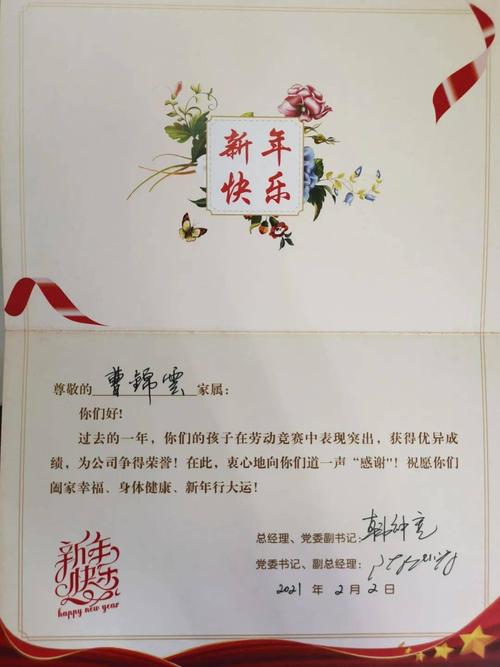 新年
快乐
尊敬的曹錦雲家属：
你们好！
过去的一年，你们的孩子在劳动竞赛中表现突出，获得优异成
绩，为公司争得荣誉！在此，衷心地向你们道一声“感谢”！祝愿你们
阖家幸福、身体健康、新年行大运！
总经理、党委副书记：
党委书记、副总经理：
2021年2月2日
新年
快乐
happy new year